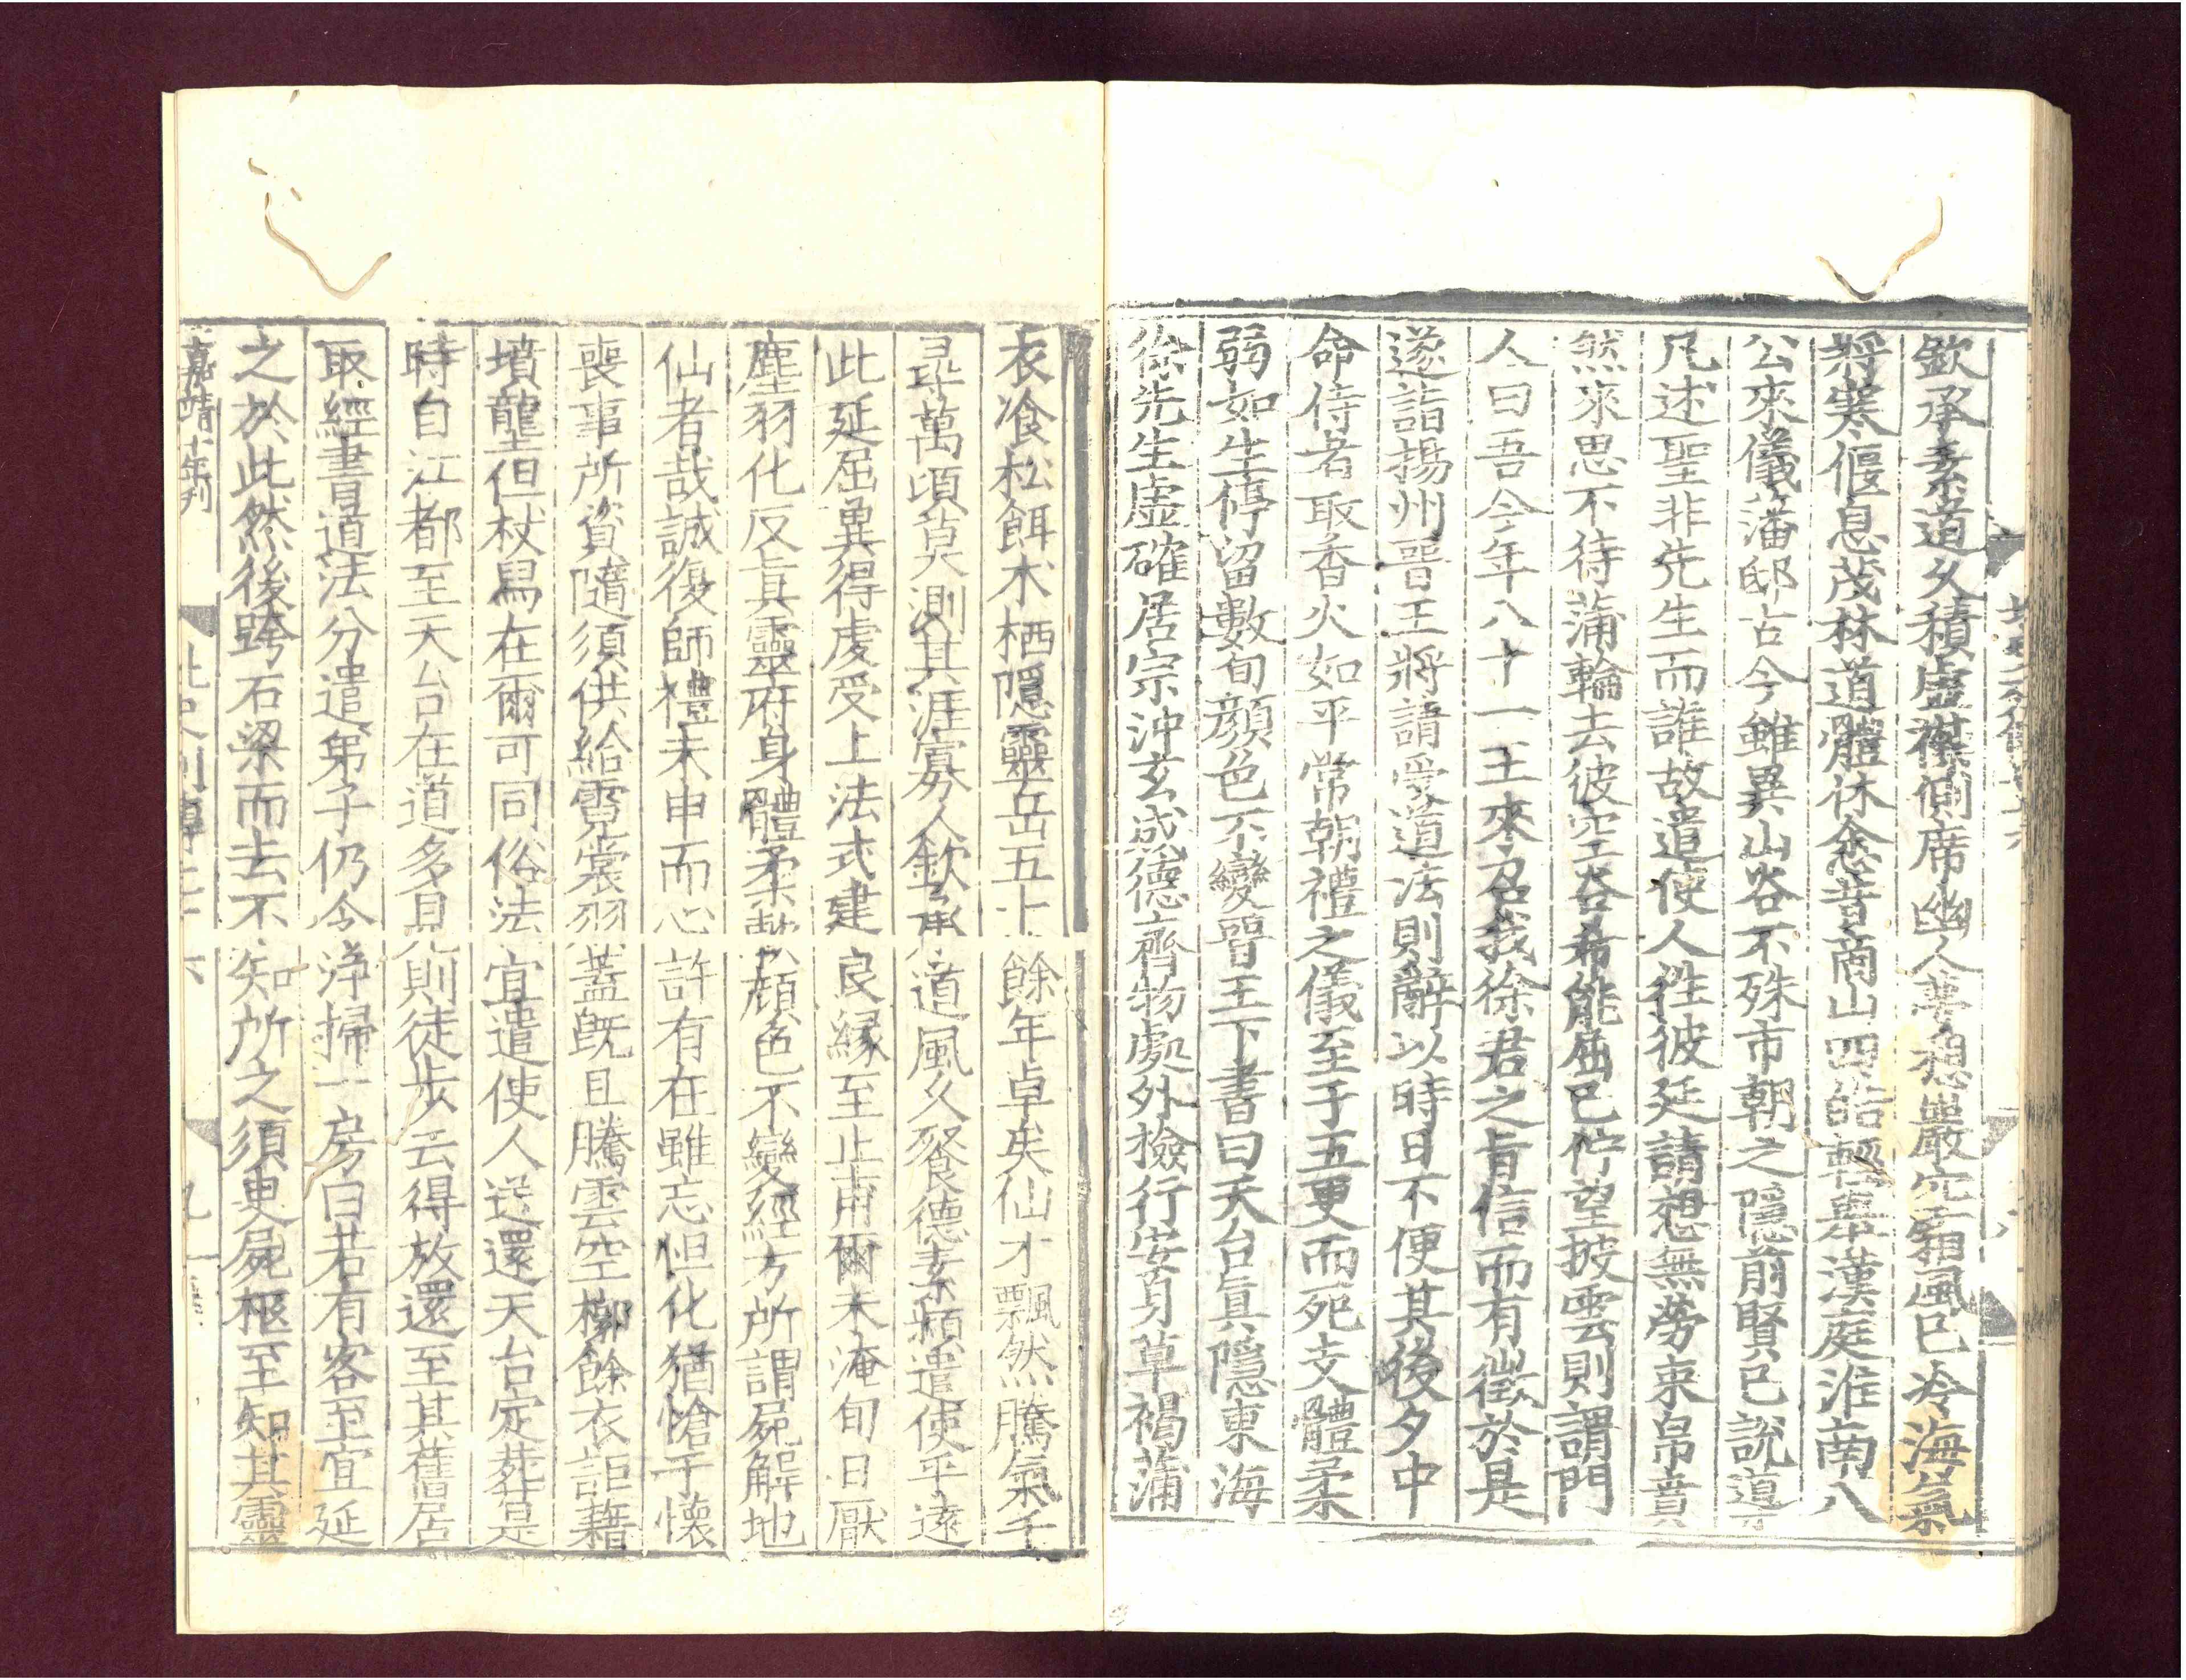 欽承素道久積虛襟側席幽人夢想巖穴霜風已冷海氣
將寒偃息茂林道體休悆昔商山四皓輕舉漢庭淮南八
公來儀藩邸古今雖異山谷不殊市朝之隱前賢已說導
凡述聖非先生而誰故遣使人往彼延請想無勞束帛賁
然來思不待蒲輪去彼空谷希能屈已佇望披雲則謂門
人曰吾今年八十一王來召我徐君之旨信而有徵於是
遂詣揚州晉王將請受道法則辭以時日不便其後夕中
命侍者取香火如平常朝禮之儀至于五更而死支體柔
弱如生停留數旬顏色不變晉王下書曰天台真隱東海
徐先生虛確居宗沖玄成德齊物處外檢行安身草褐蒲
衣飡松餌木栖隱靈岳五十餘年卓矣仙才飄然騰氣千
尋萬頃莫測其涯寡人欽承道風久飡德素頻遣使乎遠
此延屈冀得虔受上法式建良緣至止甫爾未淹旬日厭
塵羽化反真靈府身體柔軟顏色不變經方所謂屍解地
仙者哉誠復師禮未申而心許有在雖忘怛化猶愴于懷
喪事所資隨須供給霓裳羽蓋既且騰雲空槨餘衣詎藉
墳壟但杖舄在爾可同俗法宜遣使人送還天台定葬是
時自江都至天台在道多見則徒步云得放還至其舊居
取經書道法分遣弟子仍令淨掃一房曰若有客至宜延
之於此然後跨石梁而去不知所之須臾屍柩至知其靈
嘉靖十年刊
北史列傳七十六